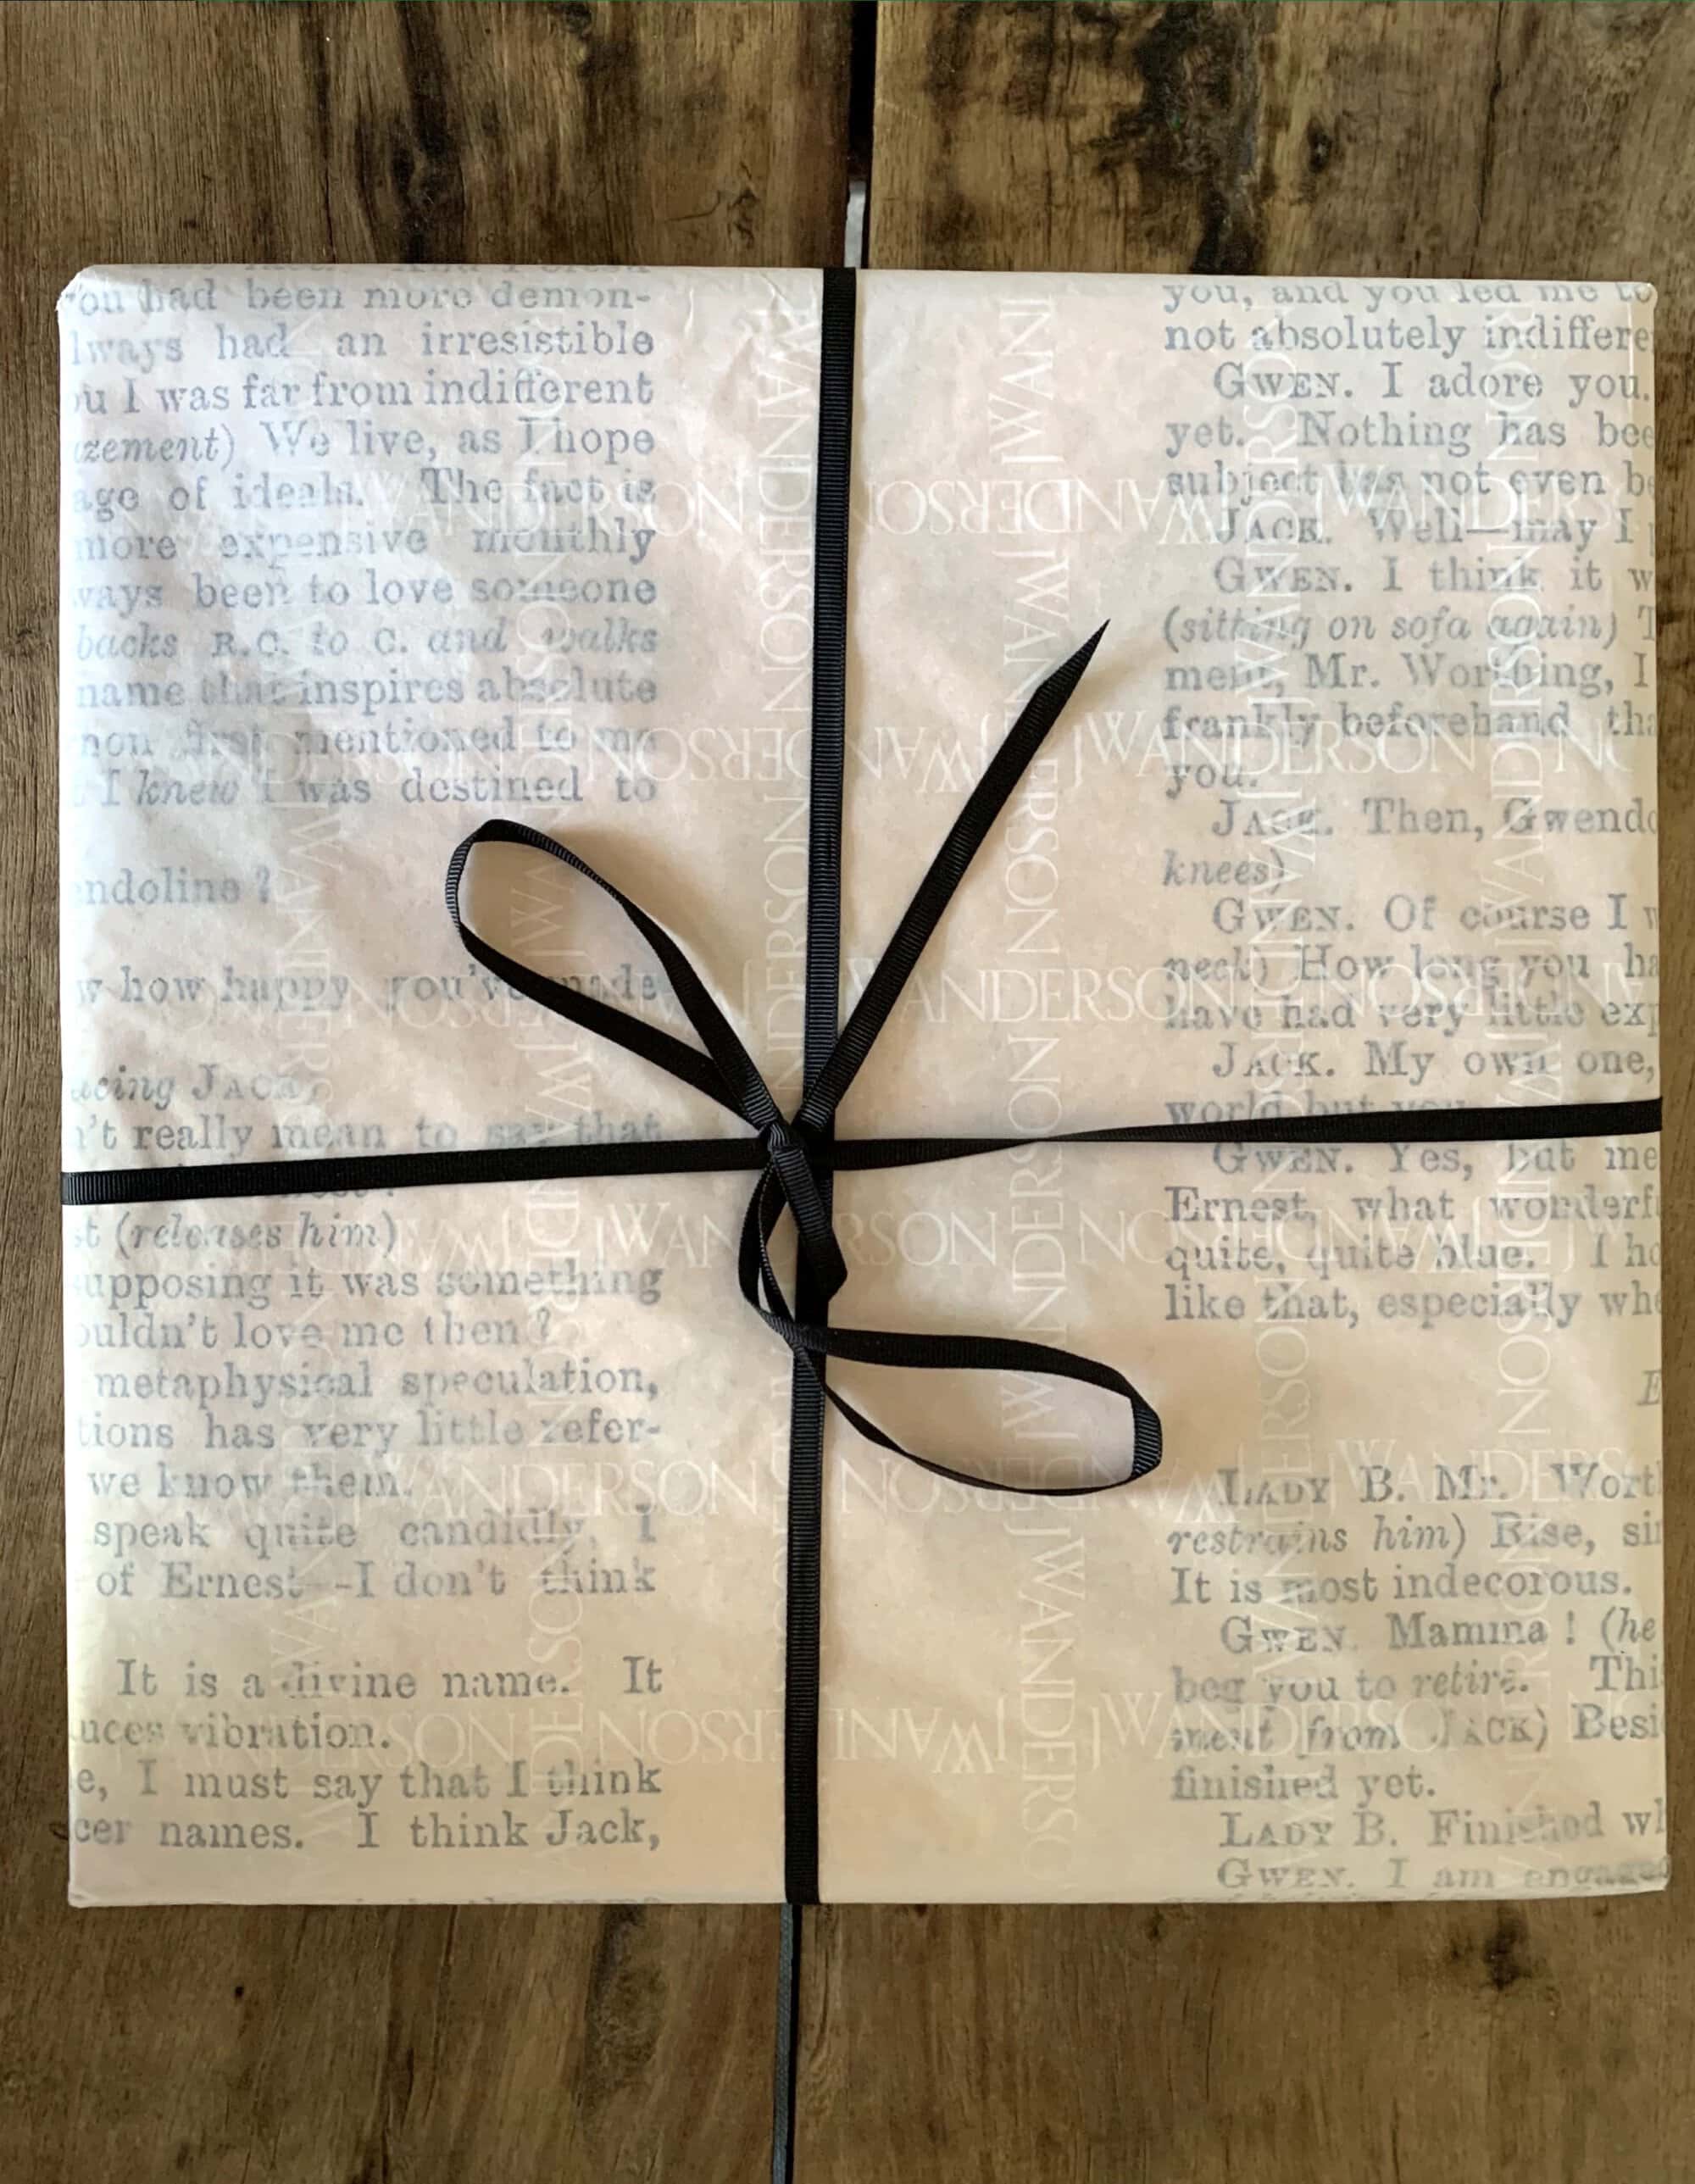 ou had been more demon-
lways had an irresistible
ou I was far from indifferent
zement) We live, as I hope
age of ideals. The fact is
more expensive monthly
ways been to love someone
backs R.C. to C. and walks
name that inspires absolute
non first mentioned to me
I knew I was destined to
endoline ?
w how happy you've made
acing JACK,
n't really mean to say that
st (releases him)
upposing it was something
ouldn't love me then ?
metaphysical speculation,
tions has very little refer-
we know them.
speak quite candidly, I
of Ernest--I don't think
It is a divine name. It
uces vibration.
e, I must say that I think
cer names. I think Jack,
you, and you led me to
not absolutely indiffere
GWEN. I adore you.
yet. Nothing has bee
subject has not even be
JACK. Well—may I
GWEN. I think it w
(sitting on sofa again) T
ment, Mr. Worthing, I
frankly beforehand tha
you.
JACK. Then, Gwendo
knees)
GWEN. Of course I w
neck) How long you ha
have had very little exp
JACK. My own one,
world but you
GWEN. Yes, but me
Ernest, what wonderfu
quite, quite blue. I ho
like that, especially whe
E
LADY B. Mr. Wort
restrains him) Rise, sir
It is most indecorous.
GWEN. Mamma ! (he
beg you to retire. Thi
ment from JACK) Besi
finished yet.
LADY B. Finished wh
GWEN. I am engaged
JWANDERSON